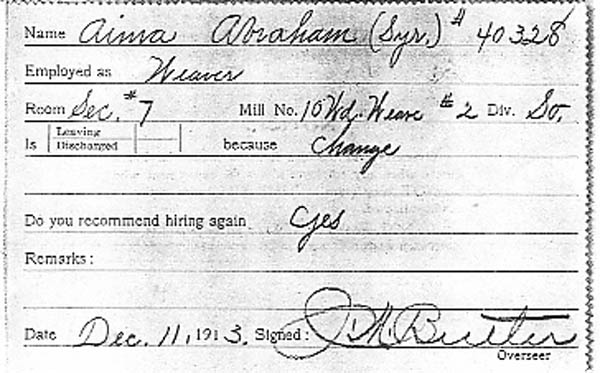 Name Aima Abraham (Syr.) # 40328
Employed as Weaver
Room Sec. #7 Mill No. 10 Wd. Weave #2 Div. So.
Is Leaving because Change
Discharged
Do you recommend hiring again yes
Remarks:
Date Dec. 11, 1913. Signed: Butler
Overseer